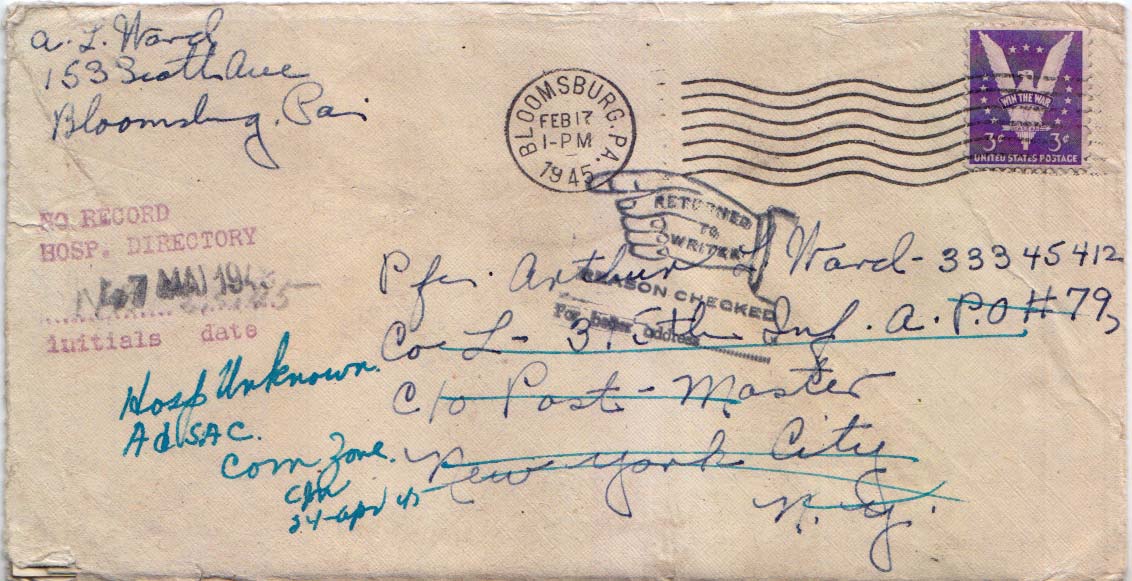 A. L. Ward
153 Scott Ave
Bloomsburg, Pa.
BLOOMSBURG, PA.
FEB 17
1-PM
1945
WIN THE WAR
3¢ 3¢
UNITED STATES POSTAGE
RETURNED
TO
WRITER
REASON CHECKED
For better address
NO RECORD
HOSP. DIRECTORY
7 MAI 194
initials date
Pfc. Arthur L Ward - 33345412
Co L - 315th Inf. A.P.O #79,
c/o Post-Master
New York City
N.Y.
Hosp Unknown.
AdSAC.
Com. Zone.
24-apr 45